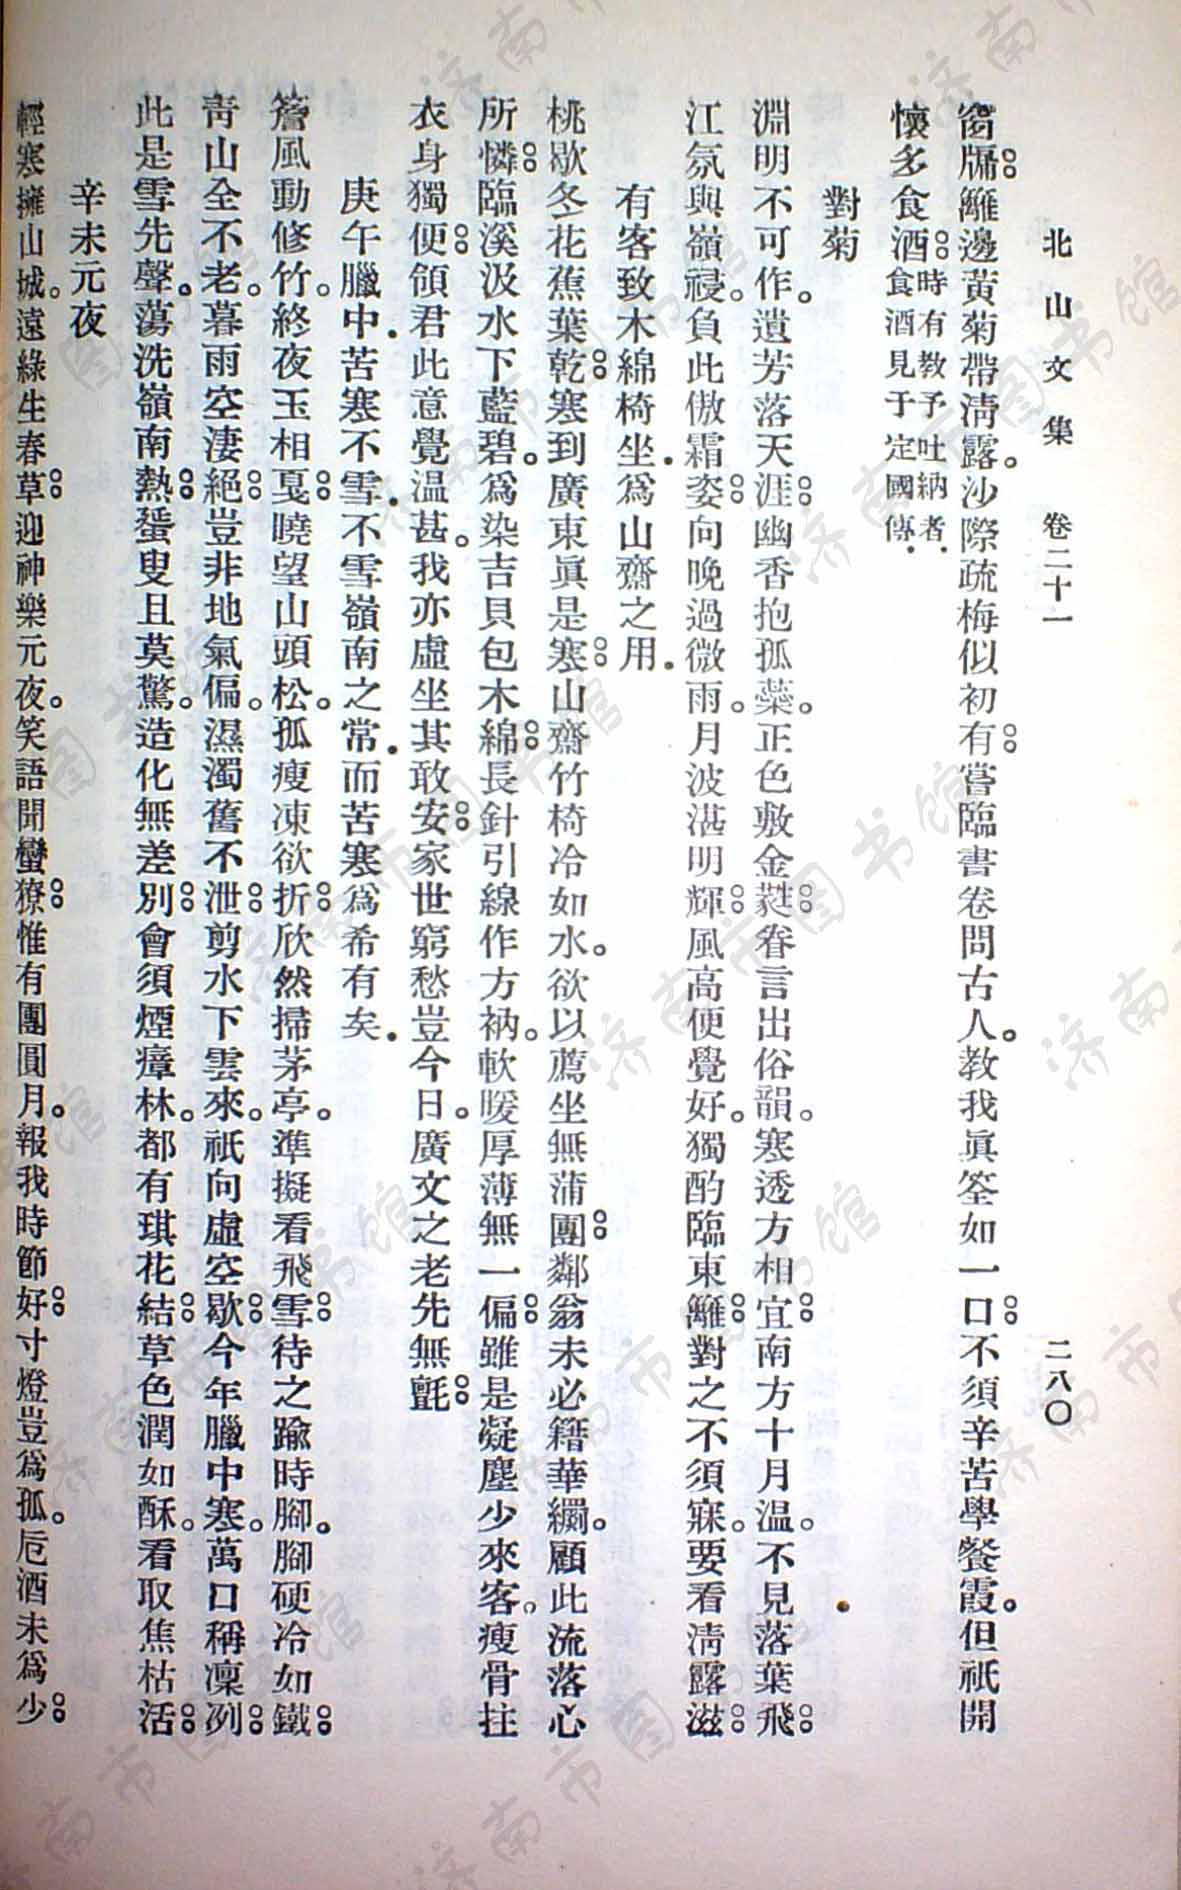 北山文集　卷二十一　二八〇
窗牖籬邊黃菊帶淸露。沙際疏梅似初有嘗臨書卷問古人。敎我眞筌如一口不須辛苦學餐霞。但祇開
懷多食酒時有敎予吐納者．食酒見于定國傳．
對菊
淵明不可作。遺芳落天涯幽香抱孤蘂。正色敷金蕤眷言出俗韻。寒透方相宜南方十月溫。不見落葉飛
江氛與嶺祲。負此傲霜姿向晚過微雨。月波湛明輝風高便覺好。獨酌臨東籬對之不須寐。要看淸露滋
有客致木綿椅坐．爲山齋之用．
桃歇冬花蕉葉乾寒到廣東眞是寒山齋竹椅冷如水。欲以薦坐無蒲團鄰翁未必籍華繝。顧此流落心
所憐臨溪汲水下藍碧。爲染吉貝包木綿長針引線作方衲。軟暖厚薄無一偏雖是凝塵少來客。瘦骨拄
衣身獨便領君此意覺溫甚。我亦虛坐其敢安家世窮愁豈今日。廣文之老先無氈
庚午臘中．苦寒不雪．不雪嶺南之常．而苦寒爲希有矣．
簷風動修竹。終夜玉相戛曉望山頭松。孤瘦凍欲折欣然掃茅亭。準擬看飛雪待之踰時腳。腳硬冷如鐵
靑山全不老。暮雨空淒絕豈非地氣偏。濕濁舊不泄剪水下雲來。祇向虛空歇今年臘中寒。萬口稱凜冽
此是雪先聲。蕩洗嶺南熱蜑叟且莫驚。造化無差別會須煙瘴林。都有琪花結草色潤如酥。看取焦枯活
辛未元夜
輕寒擁山城。遠綠生春草迎神樂元夜。笑語聞蠻獠惟有團圓月。報我時節好寸燈豈爲孤。卮酒未爲少